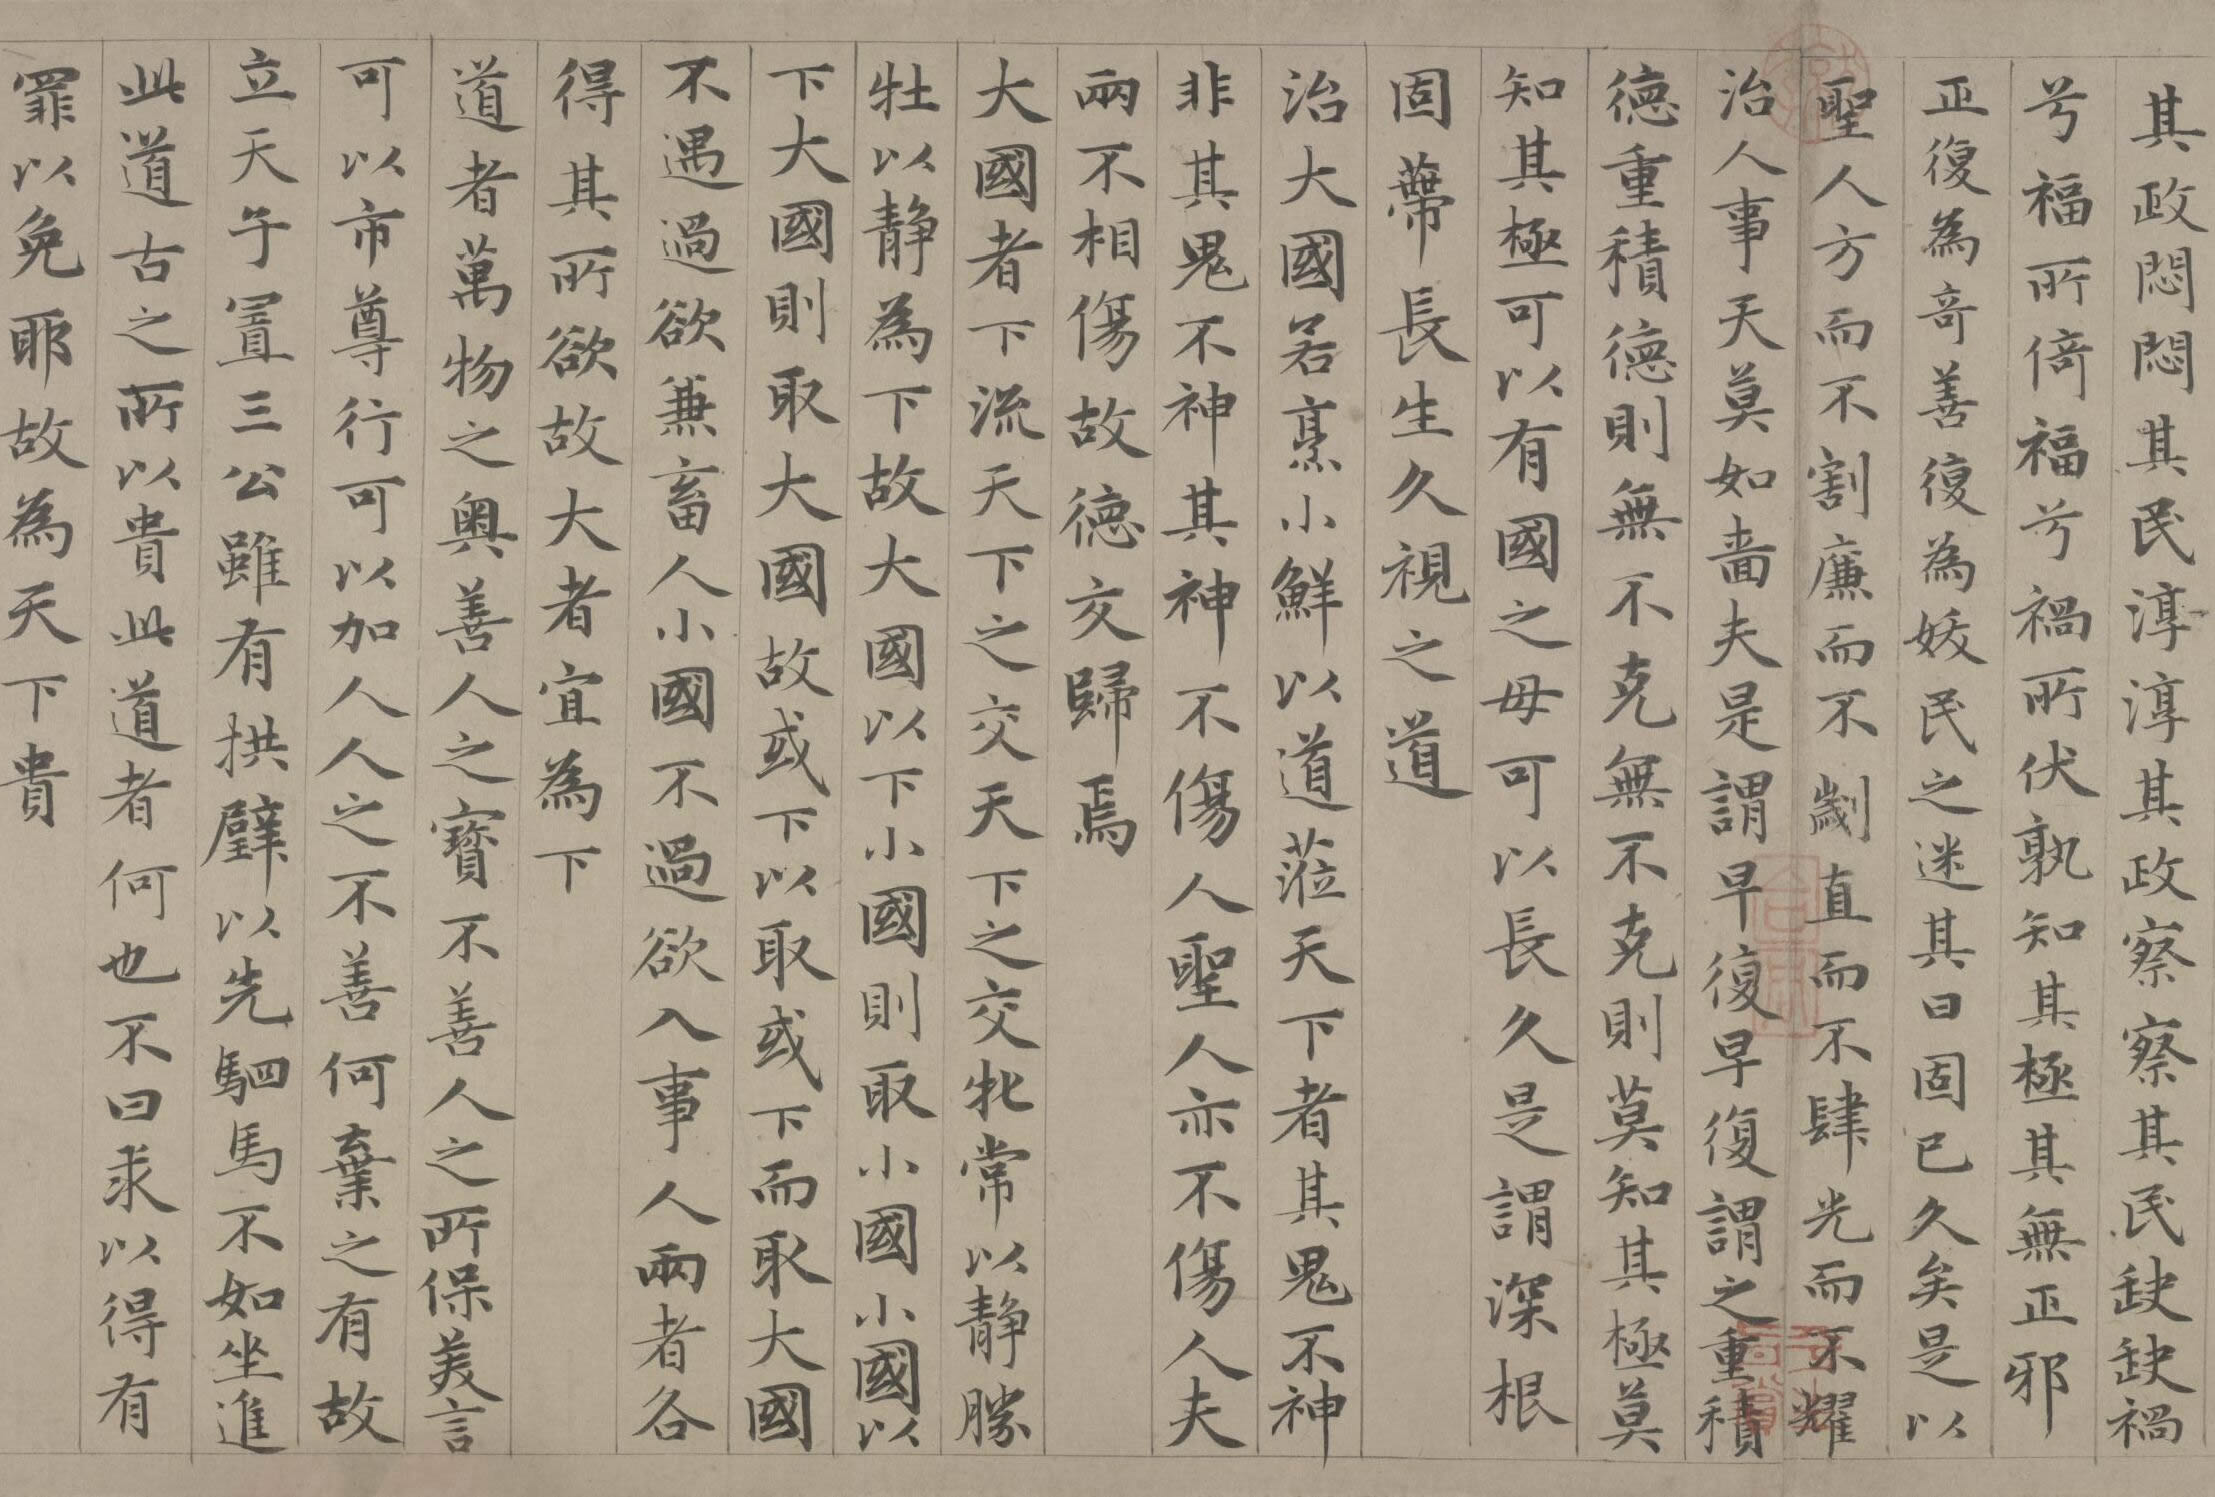 其政悶悶其民淳淳其政察察其民缺缺禍
兮福所倚福兮禍所伏孰知其極其無正邪
正復為奇善復為妖民之迷其日固已久矣是以
聖人方而不割廉而不劌直而不肆光而不耀
治人事天莫如嗇夫是謂早復早復謂之重積
德重積德則無不克無不克則莫知其極莫
知其極可以有國之母可以長久是謂深根
固蔕長生久視之道
治大國若烹小鮮以道蒞天下者其鬼不神
非其鬼不神其神不傷人聖人亦不傷人夫
兩不相傷故德交歸焉
大國者下流天下之交天下之交牝常以靜勝
牡以靜為下故大國以下小國則取小國小國以
下大國則取大國故或下以取或下而取大國
不過過欲兼畜人小國不過欲入事人兩者各
得其所欲故大者宜為下
道者萬物之奧善人之寶不善人之所保美言
可以市尊行可以加人人之不善何棄之有故
立天子置三公雖有拱璧以先駟馬不如坐進
此道古之所以貴此道者何也不曰求以得有
罪以免耶故為天下貴